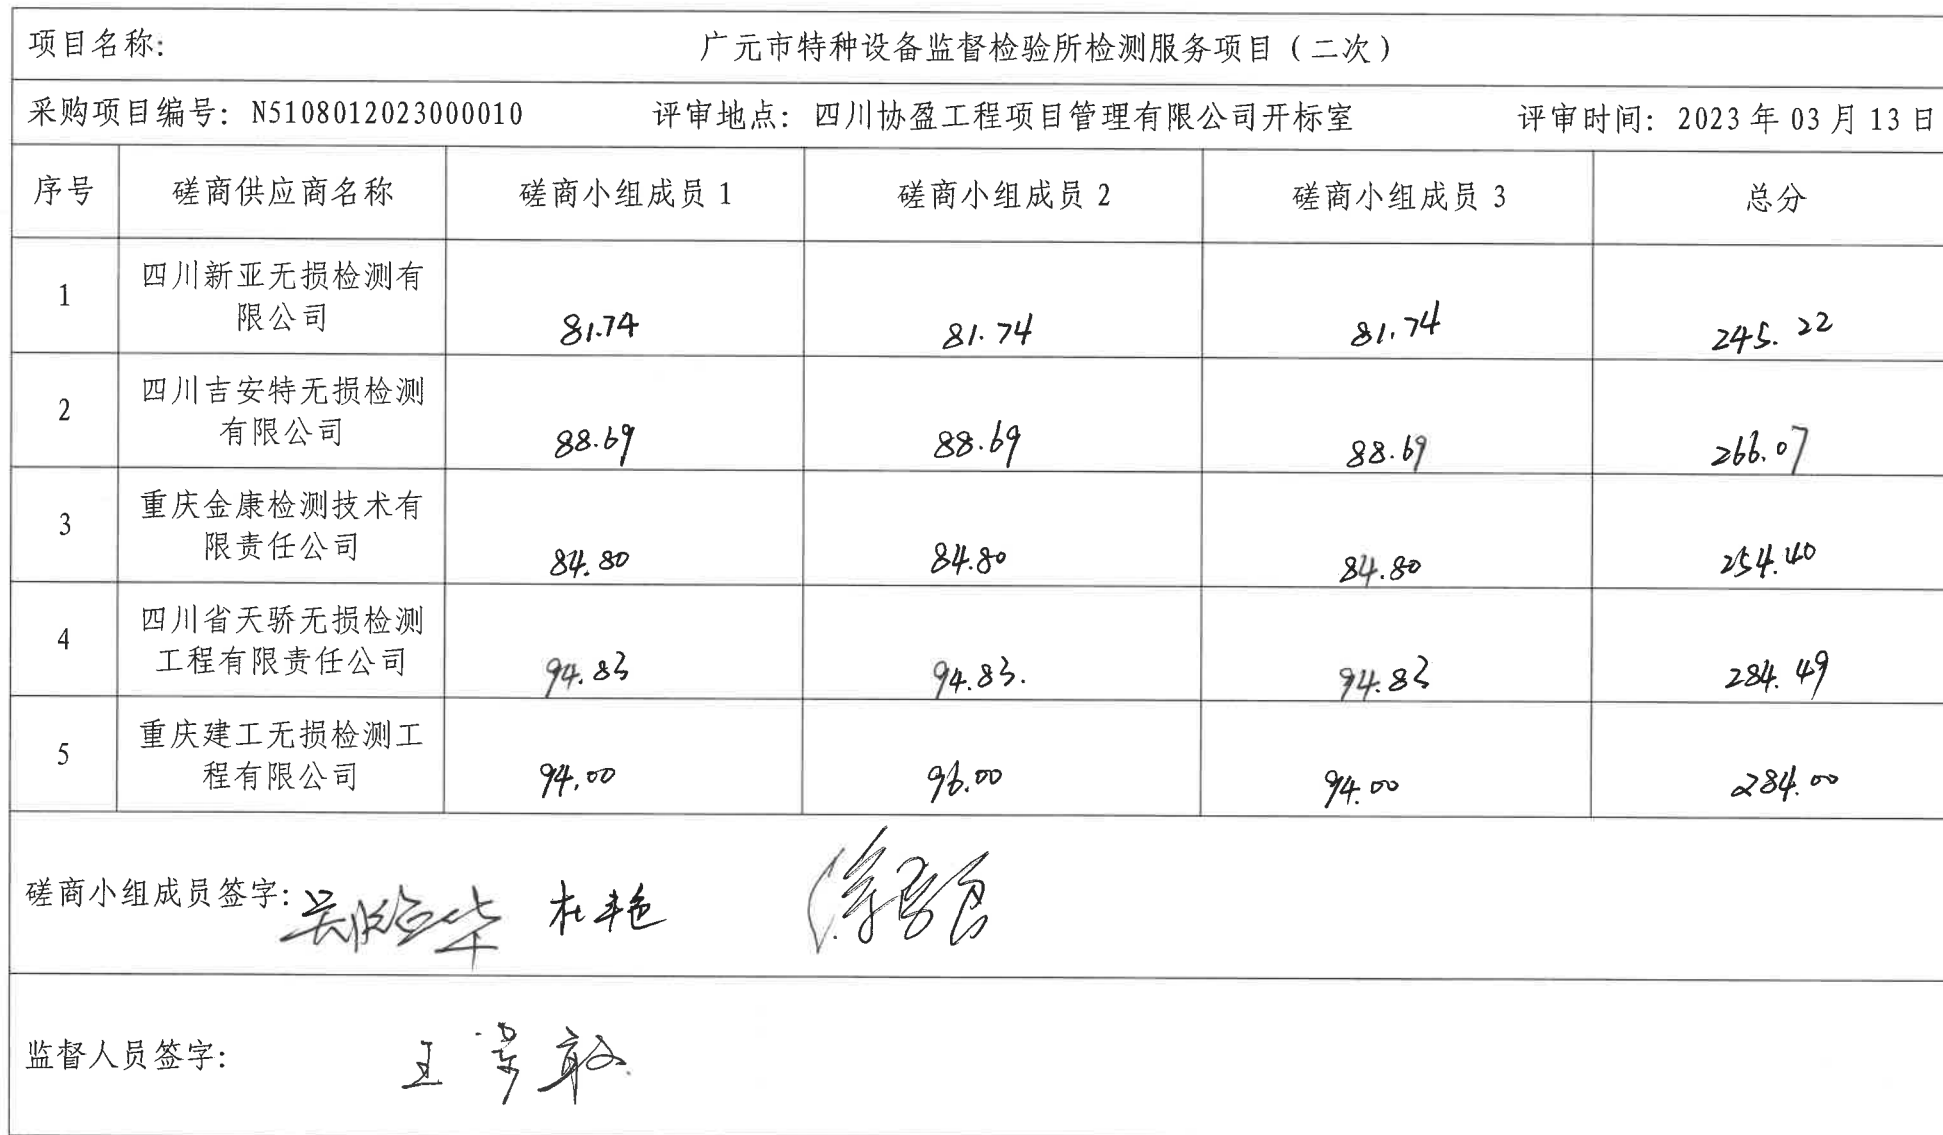 项目名称: 广元市特种设备监督检验所检测服务项目（二次）
采购项目编号: N5108012023000010 评审地点: 四川协盈工程项目管理有限公司开标室 评审时间: 2023年03月13日
序号 磋商供应商名称 磋商小组成员1 磋商小组成员2 磋商小组成员3 总分
1 四川新亚无损检测有
限公司 81.74 81.74 81.74 245.22
2 四川吉安特无损检测
有限公司 88.69 88.69 88.69 266.07
3 重庆金康检测技术有
限责任公司 84.80 84.80 84.80 254.40
4 四川省天骄无损检测
工程有限责任公司 94.83 94.83. 94.83 284.49
5 重庆建工无损检测工
程有限公司 94.00 96.00 94.00 284.00
磋商小组成员签字: 杜艳
监督人员签字: